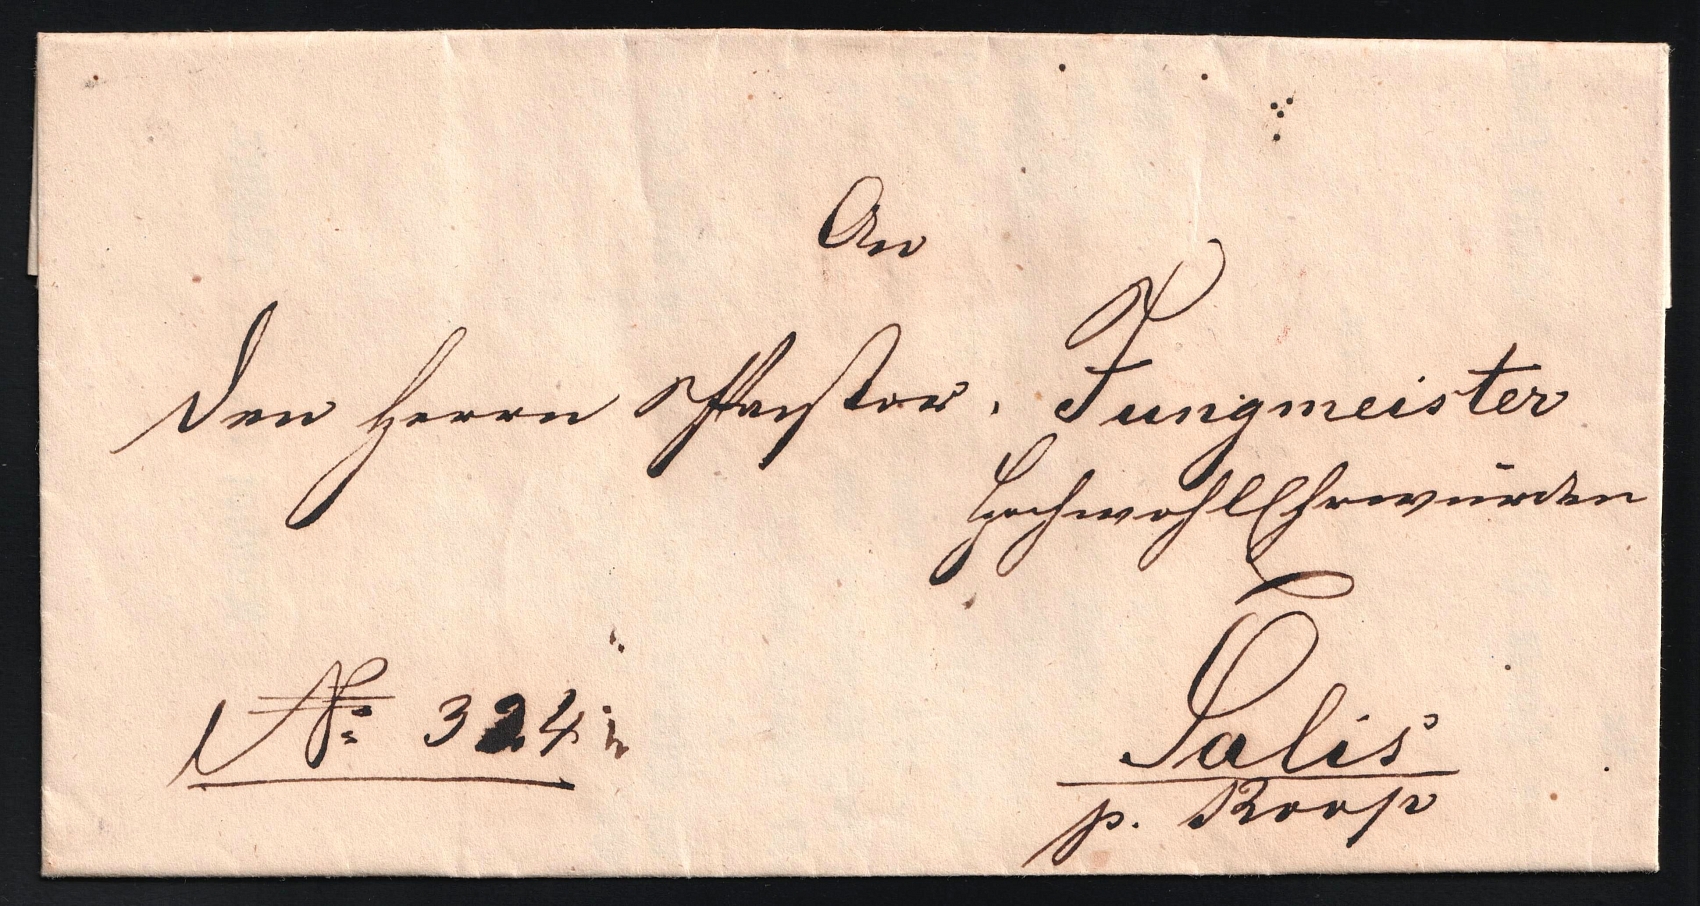 An
den Herrn Pastor. Jungmeister
HochwohlEhrwürden
№ 324
Salis
p. Roop